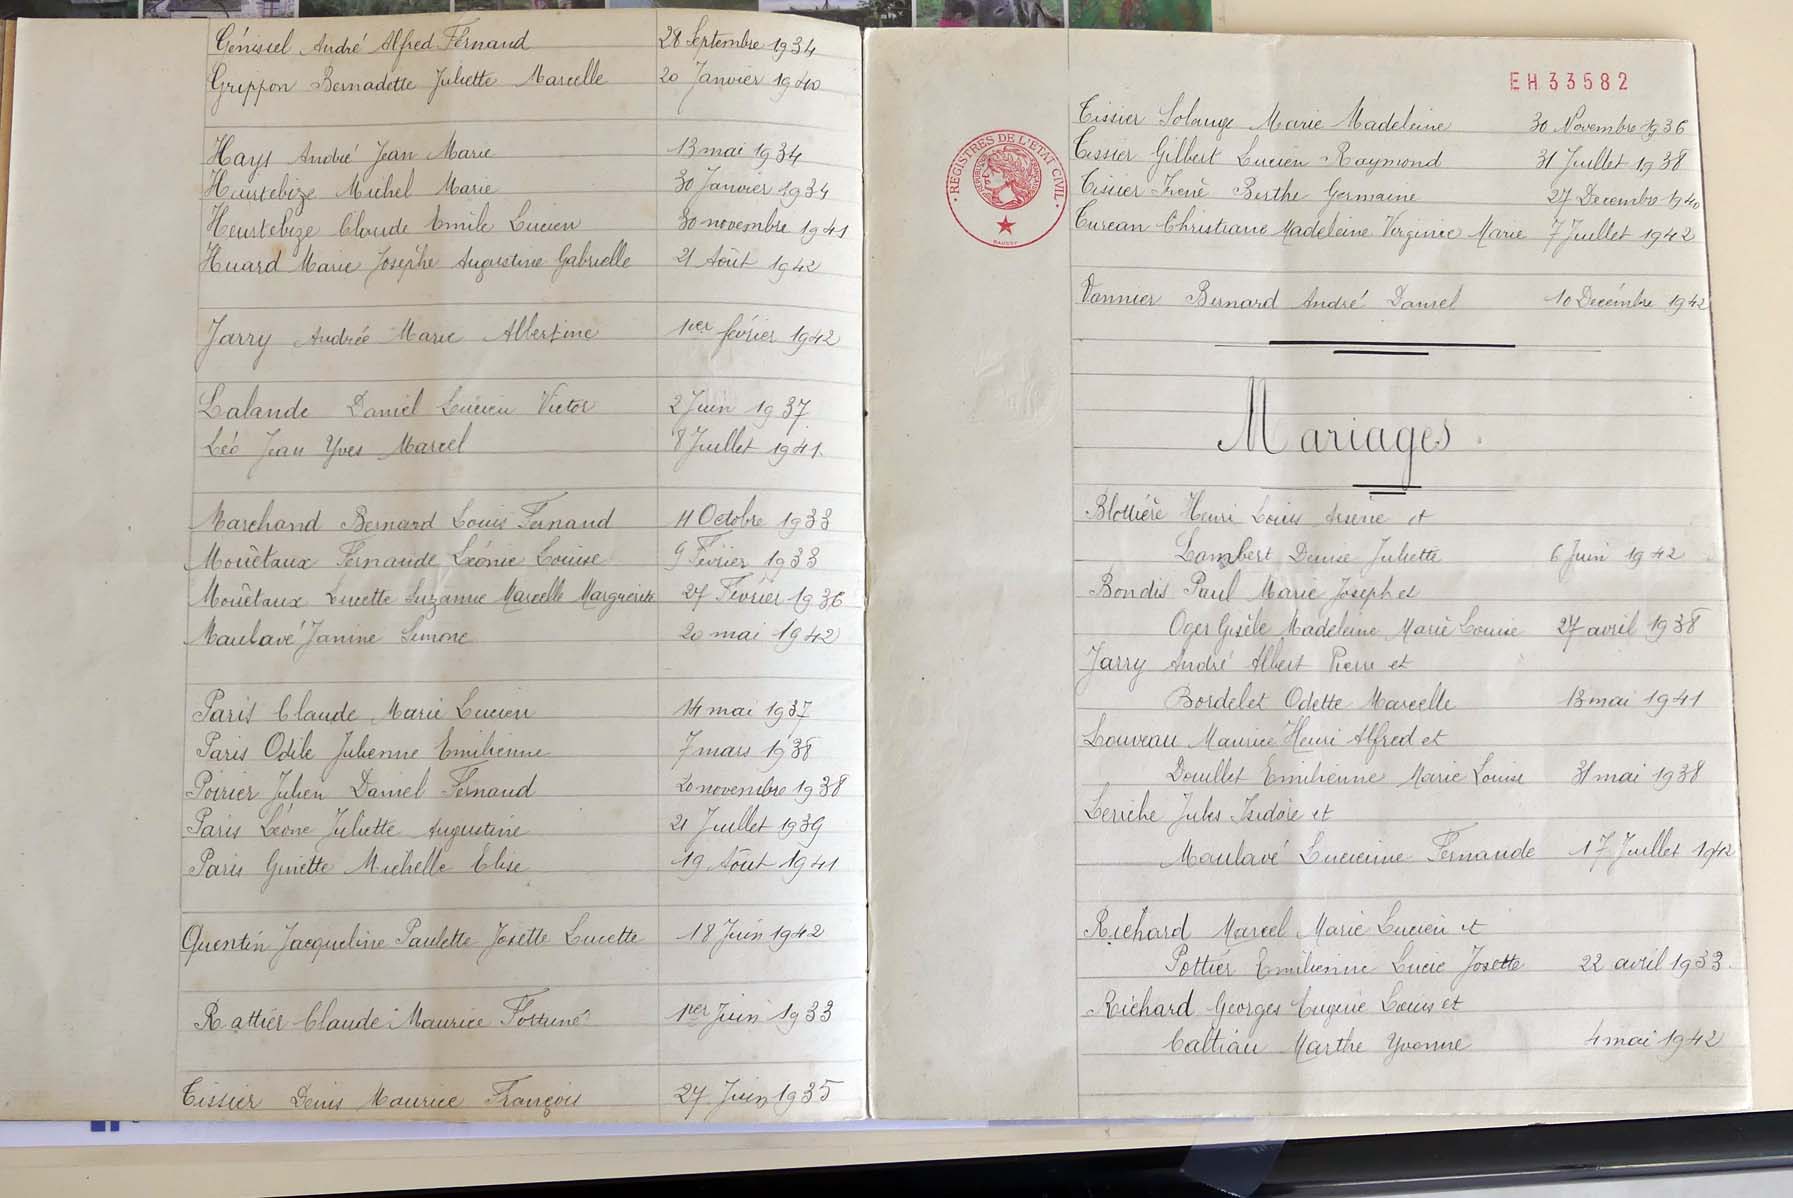 Génissel André Alfred Fernand 28 Septembre 1934
Grippon Bernadette Juliette Marcelle 20 Janvier 1940
Hays André Jean Marie 13 mai 1934
Heurtebize Michel Marie 30 Janvier 1934
Heurtebize Claude Emile Lucien 30 novembre 1941
Huard Marie Josèphe Augustine Gabrielle 21 Août 1942
Jarry Andrée Marie Albertine 1er février 1942
Lalande Daniel Lucien Victor 2 Juin 1937
Léo Jean Yves Marcel 8 Juillet 1941
Marchand Bernard Louis Fernand 11 Octobre 1933
Mouëtaux Fernande Léonie Louise 9 Février 1933
Mouëtaux Lucette Suzanne Marcelle Marguerite 27 Février 1936
Maulavé Janine Simone 20 mai 1942
Paris Claude Marie Lucien 14 mai 1937
Paris Odile Julienne Emilienne 7 mars 1938
Poirier Julien Daniel Fernand 20 novembre 1938
Paris Léone Juliette Augustine 21 Juillet 1939
Paris Ginette Michelle Elise 19 Août 1941
Quentin Jacqueline Paulette Josette Lucette 18 Juin 1942
Rattier Claude Maurice Fortuné 1er Juin 1933
Tissier Denis Maurice François 27 Juin 1935
EH33582
REGISTRES DE L'ETAT CIVIL
Tissier Solange Marie Madeleine 30 Novembre 1936
Tissier Gilbert Lucien Raymond 31 Juillet 1938
Tissier Irenè Berthe Germaine 27 Decembre 1940
Tureau Christiane Madeleine Virginie Marie 7 Juillet 1942
Vannier Bernard André Daniel 10 Decémbre 1942
Mariages
Blottière Henri Louis Arsene et
Lambert Denise Juliette 6 Juin 1942
Bondis Paul Marie Joseph et
Oger Gisèle Madeleine Marie Louise 27 avril 1938
Jarry André Albert Pierre et
Bordelet Odette Marcelle 13 mai 1941
Louveau Maurice Henri Alfred et
Douillet Emilienne Marie Louise 31 mai 1938
Leriche Jules Isidore et
Maulavé Lucienne Fernande 17 Juillet 1942
Richard Marcel Marie Lucien et
Pottier Emilienne Lucie Josette 22 avril 1933
Richard Georges Eugène Louis et
Caltiau Marthe Yvonne 4 mai 1942